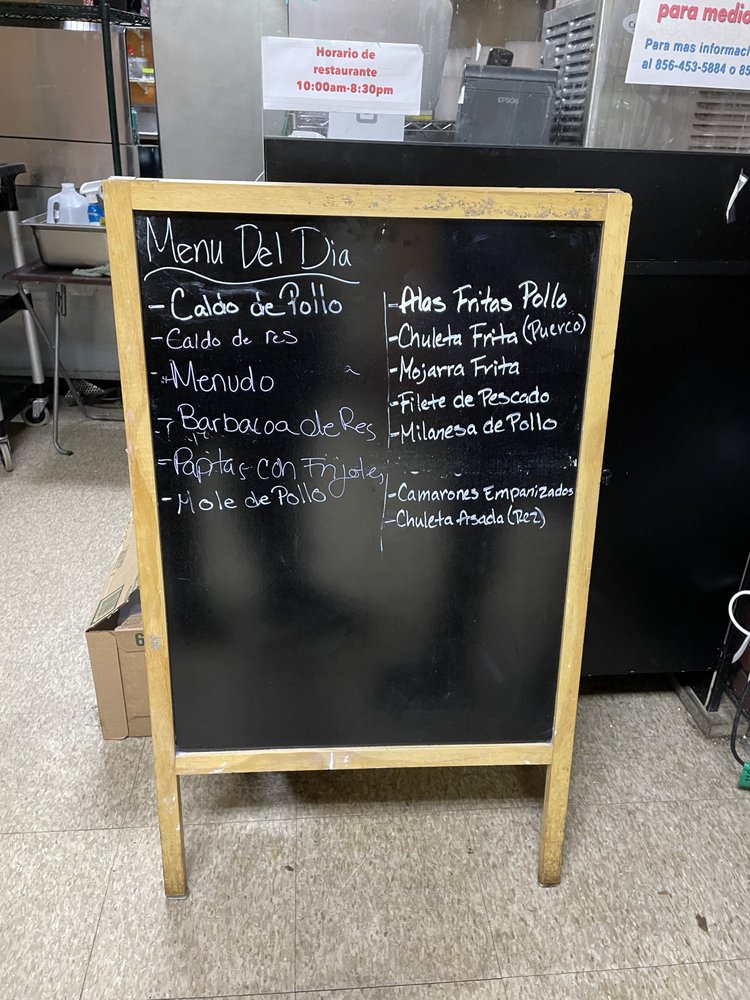 Horario de
restaurante
10:00am-8:30pm
para medio
Para mas informaci
al 856-453-5884 o 85
EPSON
Menu Del Dia
- Caldo de Pollo
- Caldo de res
- Menudo
- Barbacoa de Res
- Papitas con Frijoles
- Mole de Pollo
- Alas Fritas Pollo
- Chuleta Frita (Puerco)
- Mojarra Frita
- Filete de Pescado
- Milanesa de Pollo
- Camarones Empanizados
- Chuleta Asada (Rez)